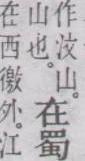 作汶山。在蜀
山也。
在西徼外。江